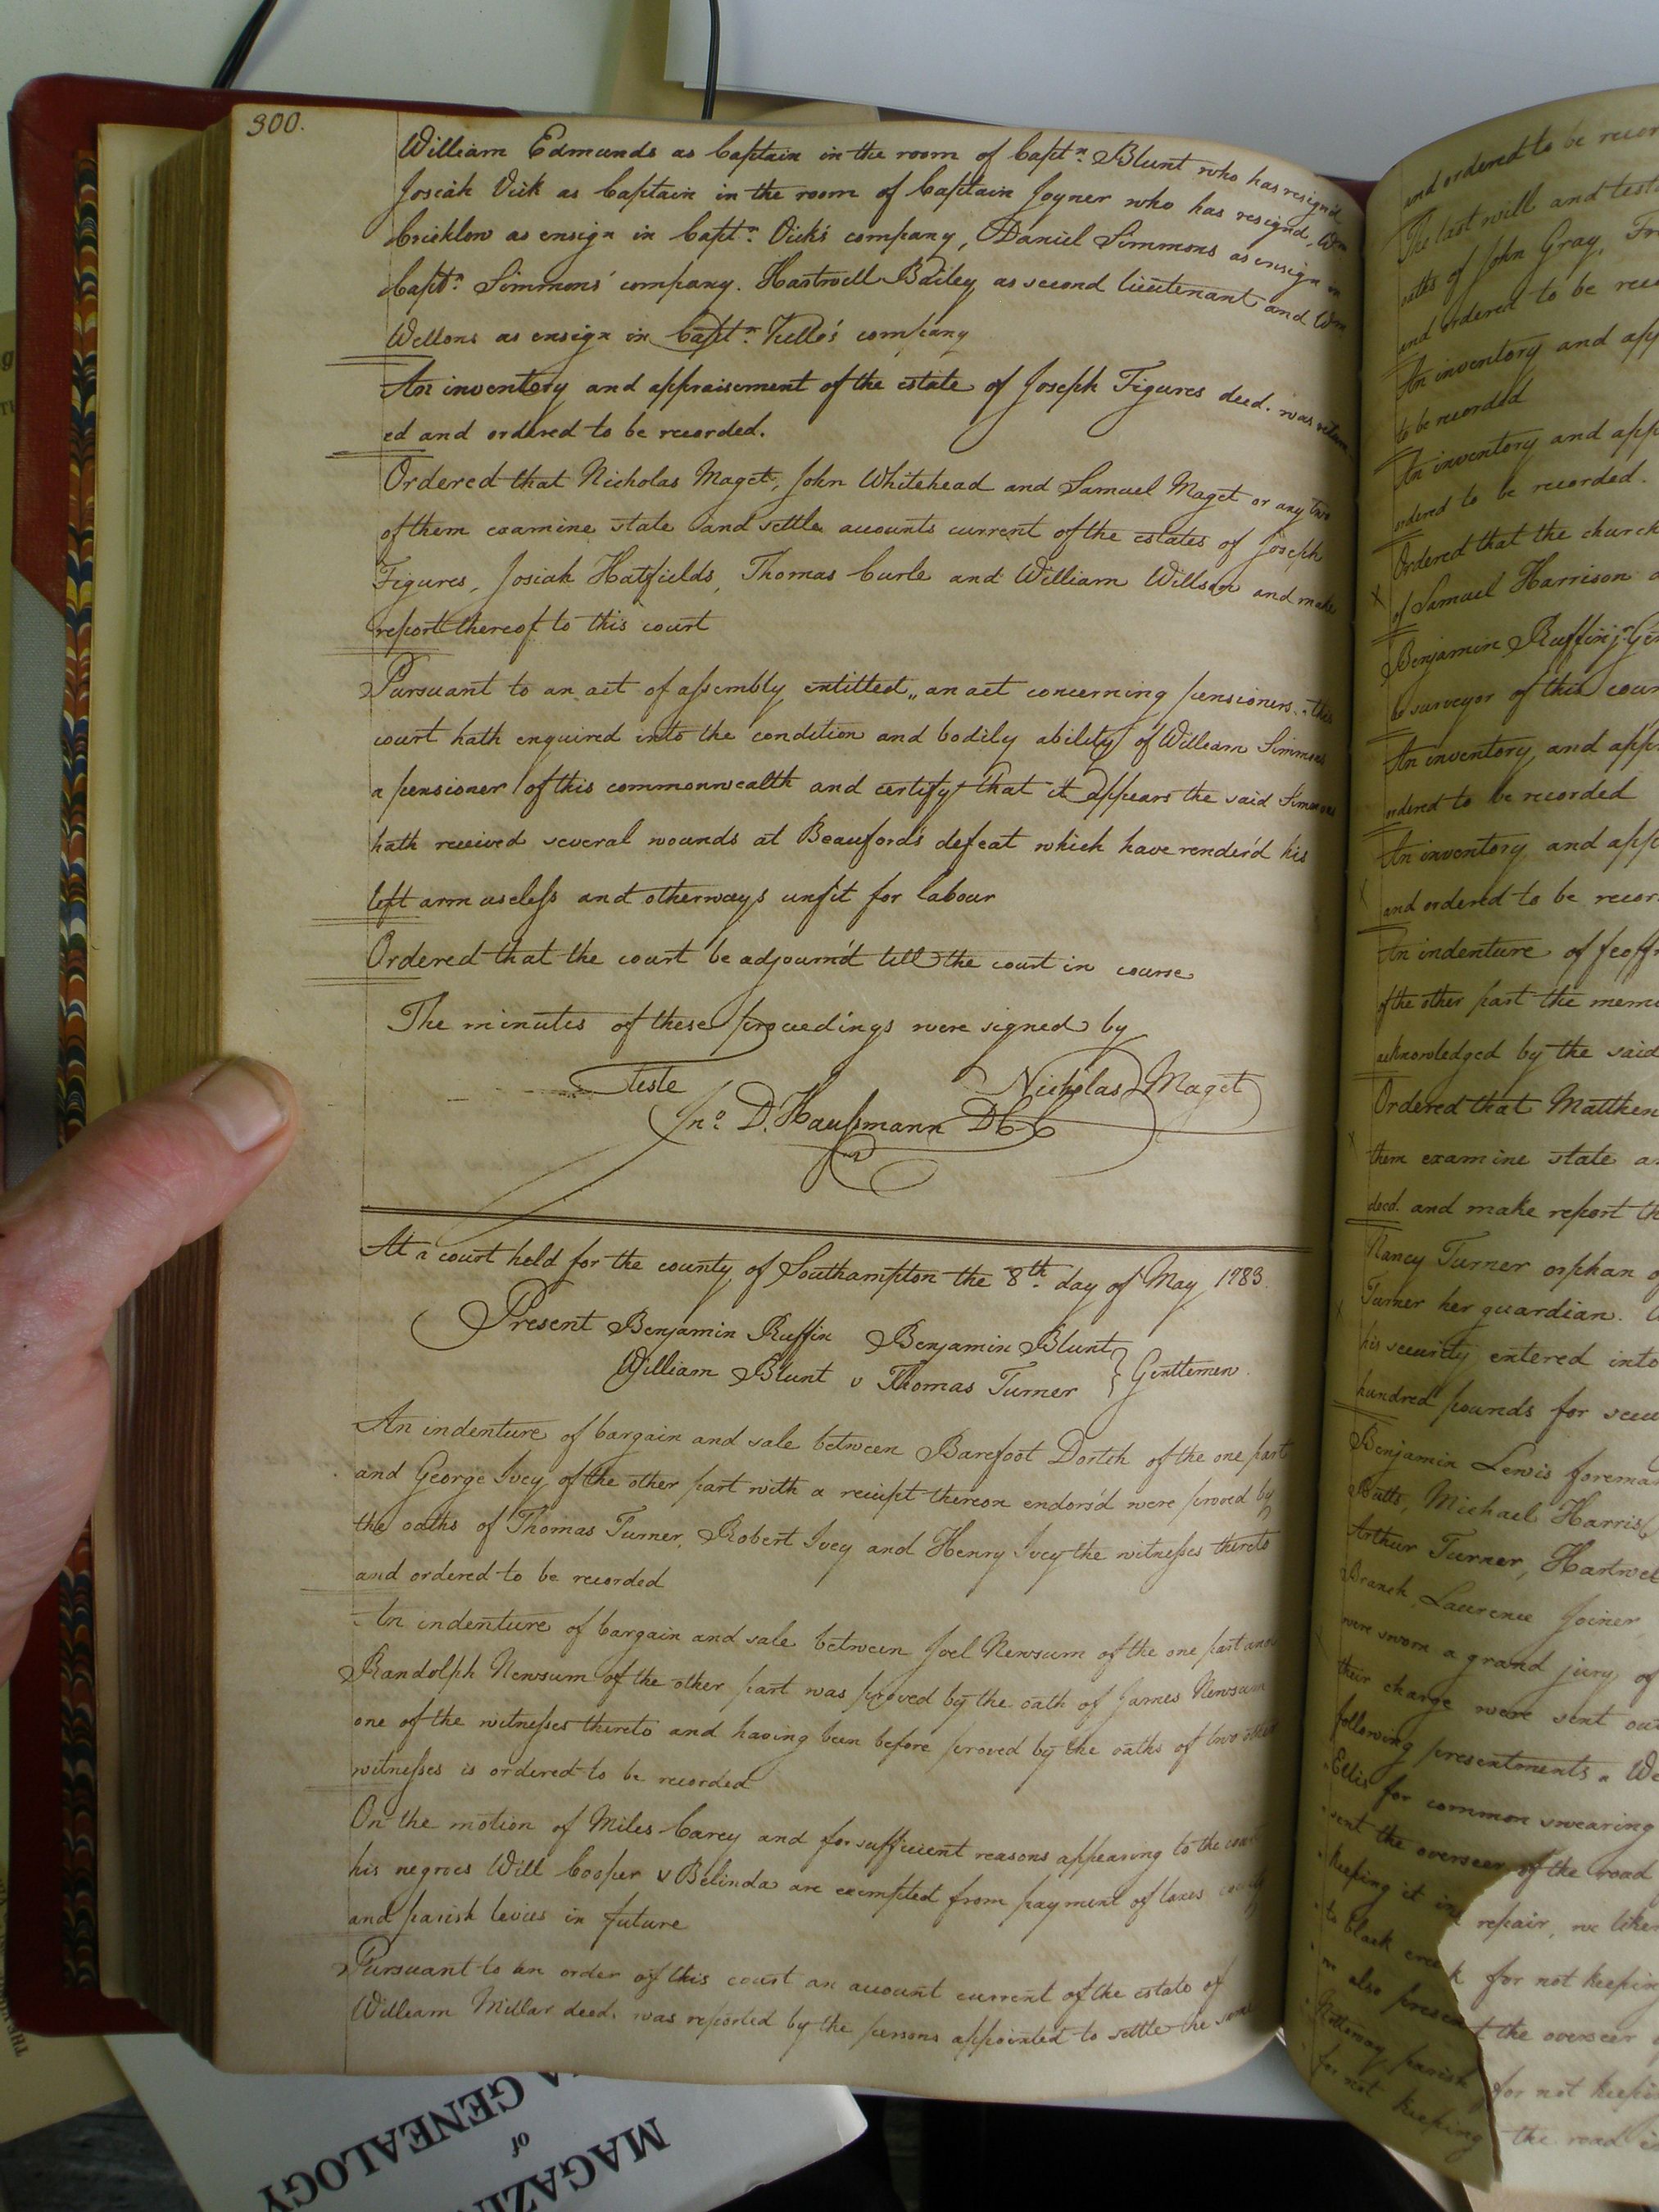 300.
William Edmunds as Captain in the room of Capt.n Blunt who has resign'd
Josiah Vick as Captain in the room of Captain Joyner who has resign'd, Wm
Cricklow as ensign in Capt.n Vick's company, Daniel Simmons as ensign in
Capt.n Simmons' company. Hartwell Bailey as second lieutenant and Wm
Wellons as ensign in Capt.n Kello's company
An inventory and appraisement of the estate of Joseph Figures deed. was return
ed and ordered to be recorded.
Ordered that Nicholas Maget, John Whitehead and Samuel Maget or any two
of them examine state and settle accounts current of the estates of Joseph
Figures, Josiah Hatfields, Thomas Curle and William Willson and make
report thereof to this court
Pursuant to an act of assembly entitled „an act concerning pensioners„ this
court hath enquired into the condition and bodily ability of William Simmons
a pensioner of this commonwealth and certify that it appears the said Simmons
hath received several wounds at Beauford's defeat which have render'd his
left arm useless and otherways unfit for labour
Ordered that the court be adjourn'd till the court in course
The minutes of these proceedings were signed by
Teste Nicholas Maget
Jno. D. Haussmann DCC
At a court held for the county of Southampton the 8th. day of May 1783.
Present Benjamin Ruffin Benjamin Blunt
William Blunt & Thomas Turner } Gentlemen.
An indenture of bargain and sale between Barefoot Dortch of the one part
and George Ivey of the other part with a receipt thereon endors'd were proved by
the oaths of Thomas Turner, Robert Ivey and Henry Ivey the witnesses thereto
and ordered to be recorded
An indenture of bargain and sale between Joel Newsum of the one part and
Randolph Newsum of the other part was proved by the oath of James Newsum
one of the witnesses thereto and having been before proved by the oaths of two other
witnesses is ordered to be recorded
On the motion of Miles Carey and for sufficient reasons appearing to the court
his negroes Will Cooper & Belinda are exempted from payment of taxes county
and parish levies in future
Pursuant to an order of this court an account current of the estate of
William Millar deed. was reported by the persons appointed to settle the same
and ordered to be recor
The last will and test
oaths of John Gray,
and ordered to be rec
An inventory and app
to be recorded
An inventory and app
ordered to be recorded.
Ordered that the church
of Samuel Harrison
Benjamin Ruffin jr. Gen
to surveyor of this coun
An inventory and app
ordered to be recorded
An inventory and app
and ordered to be recor
An indenture of feoff
of the other part the mem
acknowledged by the said
Ordered that Matthew
them examine state a
deed. and make report th
Nancy Turner orphan of
Turner her guardian.
his security entered into
hundred pounds for secu
Benjamin Lewis forema
Butts, Michael Harris,
Arthur Turner, Hartwel
Branch, Laurence Joiner,
were sworn a grand jury of
their charge were sent out
following presentments „ We
Ellis for common swearing
sent the overseer of the road
keeping it in repair, we like
to black creek for not keeping
we also present the overseer
Nottoway parish for not keepi
for not keeping the road
MAGAZIN
of
A GENEALOGY